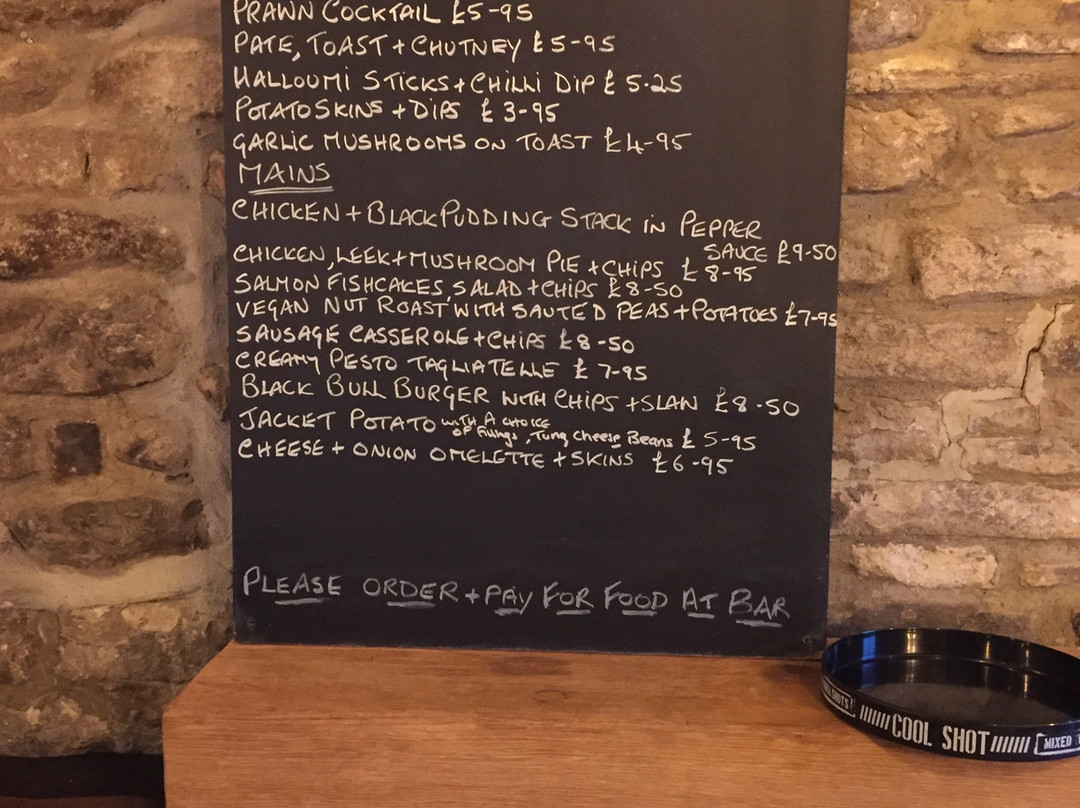 PRAWN COCKTAIL £5-95
PATE, TOAST + CHUTNEY £5-95
HALLOUMI STICKS + CHILLI DIP £ 5.25
POTATO SKINS + DIPS £ 3-95
GARLIC MUSHROOMS ON TOAST £4-95
MAINS
CHICKEN + BLACK PUDDING STACK in PEPPER
SAUCE £9-50
CHICKEN, LEEK + MUSHROOM PIE + CHIPS £ 8-95
SALMON FISHCAKES, SALAD + CHIPS £8-50
VEGAN NUT ROAST WITH SAUTE'D PEAS + POTATOES £7-95
SAUSAGE CASSEROLE + CHIPS £8-50
CREAMY PESTO TAGLIATELLE £ 7-95
BLACK BULL BURGER WITH CHIPS + SLAW £8-50
JACKET POTATO WITH A CHOICE
OF Fillings, Tuna, Cheese, Beans £ 5-95
CHEESE + ONION OMELETTE + SKINS £6-95
PLEASE ORDER + PAY FOR FOOD AT BAR
SHOTS!
COOL SHOT
MIXED